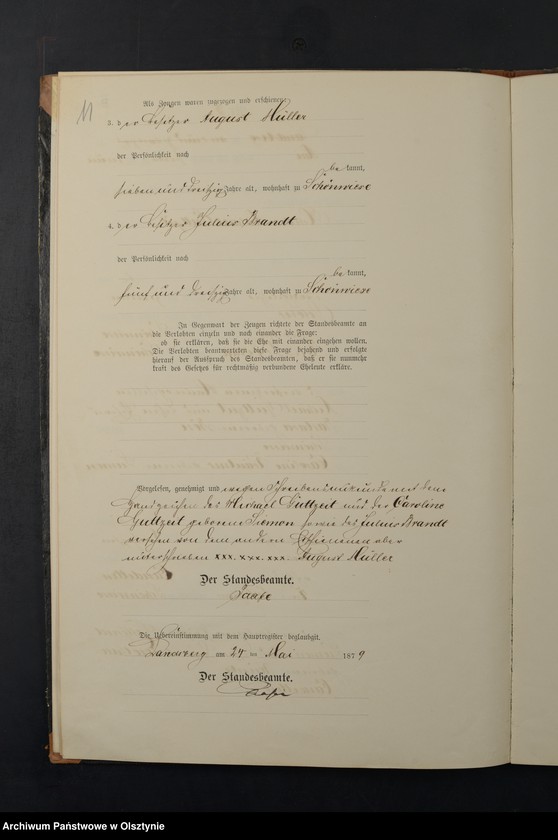 11
Als Zeugen waren zugezogen und erschienen:
3. der Besitzer August Müller
der Persönlichkeit nach
be kannt,
sieben und dreißig Jahre alt, wohnhaft zu Schönwiese
4. der Besitzer Julius Brandt
der Persönlichkeit nach
be kannt,
fünf und dreißig Jahre alt, wohnhaft zu Schönwiese
In Gegenwart der Zeugen richtete der Standesbeamte an
die Verlobten einzeln und nach einander die Frage:
ob sie erklären, daß sie die Ehe mit einander eingehen wollen.
Die Verlobten beantworteten diese Frage bejahend und erfolgte
hierauf der Ausspruch des Standesbeamten, daß er sie nunmehr
kraft des Gesetzes für rechtmäßig verbundene Eheleute erkläre.
Vorgelesen, genehmigt und wegen Schreibensunkunde mit dem
Handzeichen des Michael Guttzeit und der Caroline
Guttzeit geborene Siemon sowie des Julius Brandt
versehen von dem andern Erschienenen aber
unterschrieben xxx. xxx. xxx. August Müller
Der Standesbeamte.
Die Uebereinstimmung mit dem Hauptregister beglaubigt.
Landsberg am 24 ten Mai 1879
Der Standesbeamte.
Archiwum Państwowe w Olsztynie